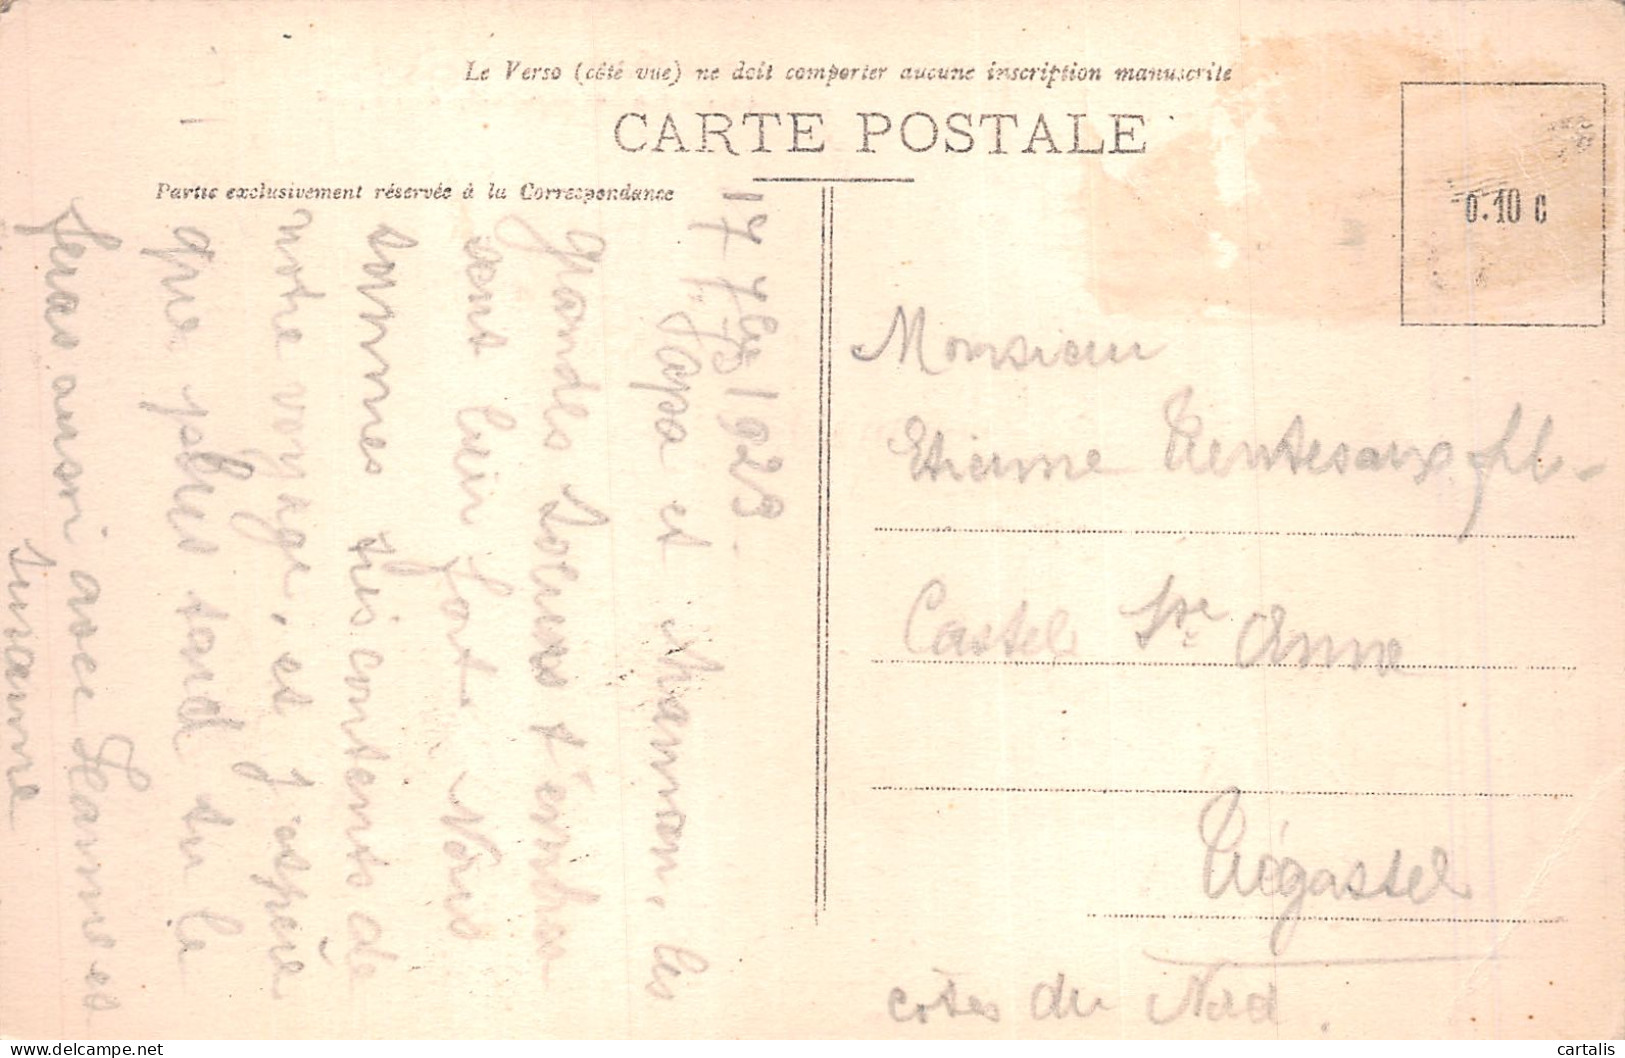 Le Verso (côté vue) ne doit comporter aucune inscription manuscrite
CARTE POSTALE
Partie exclusivement réservée à la Correspondance
0.10 c
17 7bre 1923.
Papa et Maman, les
grandes soeurs t'embras
sent bien fort. Nous
sommes très contents de
notre voyage, et j'espère
que plus tard tu le
feras aussi avec Jeanne et
Suzanne
Monsieur
Etienne Trentesaux fil-
Castel Ste Anne
Trégastel
Côtes du Nord.
cartalis